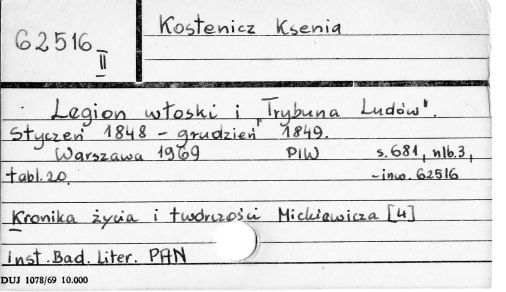 62516
II
Kostenicz Ksenia
Legion włoski i „Trybuna Ludów".
Styczeń 1848 – grudzień 1849.
Warszawa 1969 PIW s. 681, nlb. 3,
tabl. 20. – inw. 62516
Kronika życia i twórczości Mickiewicza [4]
Inst. Bad. Liter. PAN
DUJ 1078/69 10.000